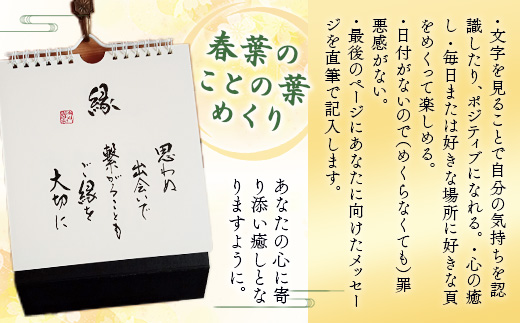 春葉の
ことのの葉
めくり
・文字を見ることで自分の気持ちを認
識したり、ポジティブになれる。・心の癒
し・毎日または好きな場所に好きな頁
をめくって楽しめる。
・日付がないので(めくらなくても)罪
悪感がない。
・最後のページにあなたに向けたメッセー
ジを直筆で記入します。
縁
思わぬ
出会いで
繋がることも
ご縁を
大切に
あなたの心に寄
り添い癒しとな
りますように。